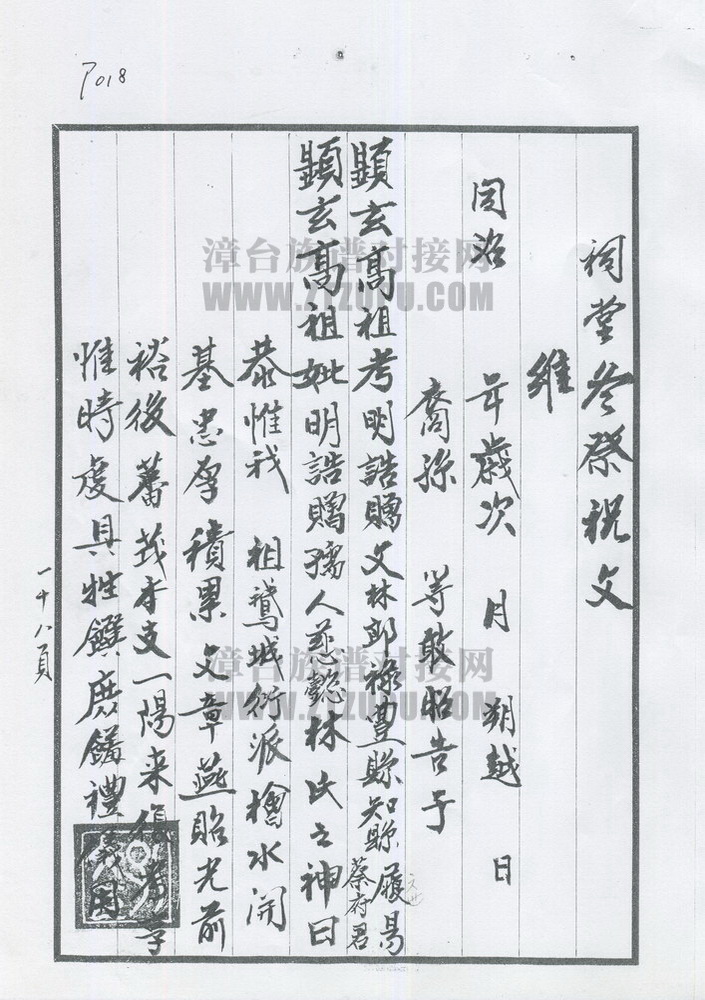 P018
祠堂冬祭祝文
維
同治 年歲次 月 朔越 日
裔孫 等敢昭告于
顯玄高祖考明誥贈文林郎祿豐縣知縣履易蔡府君
顯玄高祖妣明誥贈孺人慈懿林氏之神曰
恭惟我 祖鵞城衍派檜水開
基忠厚積累文章燕貽光前
裕後蕃茂本支一陽来復
惟時虔具牲饌庶饈禮儀用
一十八頁
漳台族谱对接网
WWW.ZTZUPU.COM
漳台族谱对接网
WWW.ZTZUPU.COM